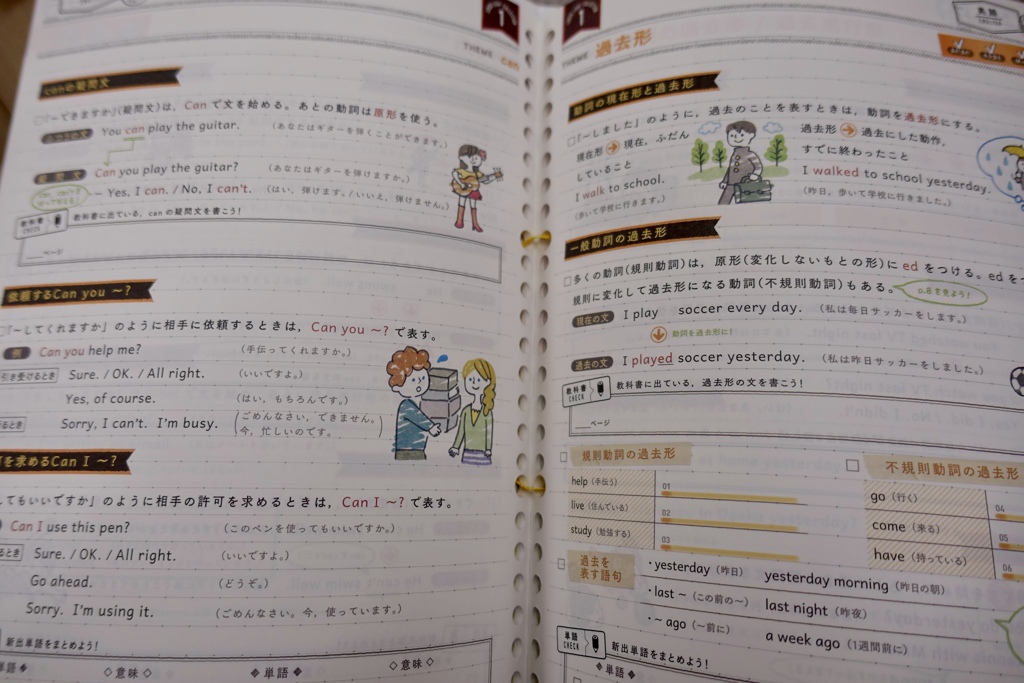 1
THEME can
canの疑問文
「〜できますか」(疑問文)は、Can で文を始める。あとの動詞は原形を使う。
You can play the guitar. (あなたはギターを弾くことができます。)
Can you play the guitar? (あなたはギターを弾けますか。)
— Yes, I can. / No, I can't. (はい、弾けます。/いいえ、弾けません。)
教科書 CHECK 教科書に出ている、canの疑問文を書こう!
ページ
依頼するCan you 〜?
「〜してくれますか」のように相手に依頼するときは、Can you 〜? で表す。
例 Can you help me? (手伝ってくれますか。)
引き受けるとき Sure. / OK. / All right. (いいですよ。)
Yes, of course. (はい、もちろんです。)
るとき Sorry, I can't. I'm busy. (ごめんなさい、できません。今、忙しいのです。)
を求めるCan I 〜?
してもいいですか」のように相手の許可を求めるときは、Can I 〜? で表す。
Can I use this pen? (このペンを使ってもいいですか。)
るとき Sure. / OK. / All right. (いいですよ。)
Go ahead. (どうぞ。)
Sorry. I'm using it. (ごめんなさい。今、使っています。)
新出単語をまとめよう!
単語◆ ◇意味◇ ◆単語◆ ◇意味◇
1
英語
THEME 過去形
動詞の現在形と過去形
□「〜しました」のように、過去のことを表すときは、動詞を過去形にする。
現在形 現在、ふだんしていること
I walk to school.
(歩いて学校に行きます。)
過去形 過去にした動作、すでに終わったこと
I walked to school yesterday.
(昨日、歩いて学校に行きました。)
一般動詞の過去形
□多くの動詞(規則動詞)は、原形(変化しないもとの形)に ed をつける。ed を
規則に変化して過去形になる動詞(不規則動詞)もある。
p.8を見よう!
現在の文 I play soccer every day. (私は毎日サッカーをします。)
動詞を過去形に!
過去の文 I played soccer yesterday. (私は昨日サッカーをしました。)
教科書 CHECK 教科書に出ている、過去形の文を書こう!
ページ
□ 規則動詞の過去形
help (手伝う) 01
live (住んでいる) 02
study (勉強する) 03
□ 不規則動詞の過去形
go (行く) 04
come (来る) 05
have (持っている) 06
□ 過去を表す語句
・yesterday (昨日) yesterday morning (昨日の朝)
・last 〜 (この前の〜) last night (昨夜)
・〜 ago (〜前に) a week ago (1週間前に)
単語 CHECK 新出単語をまとめよう!
◆単語◆